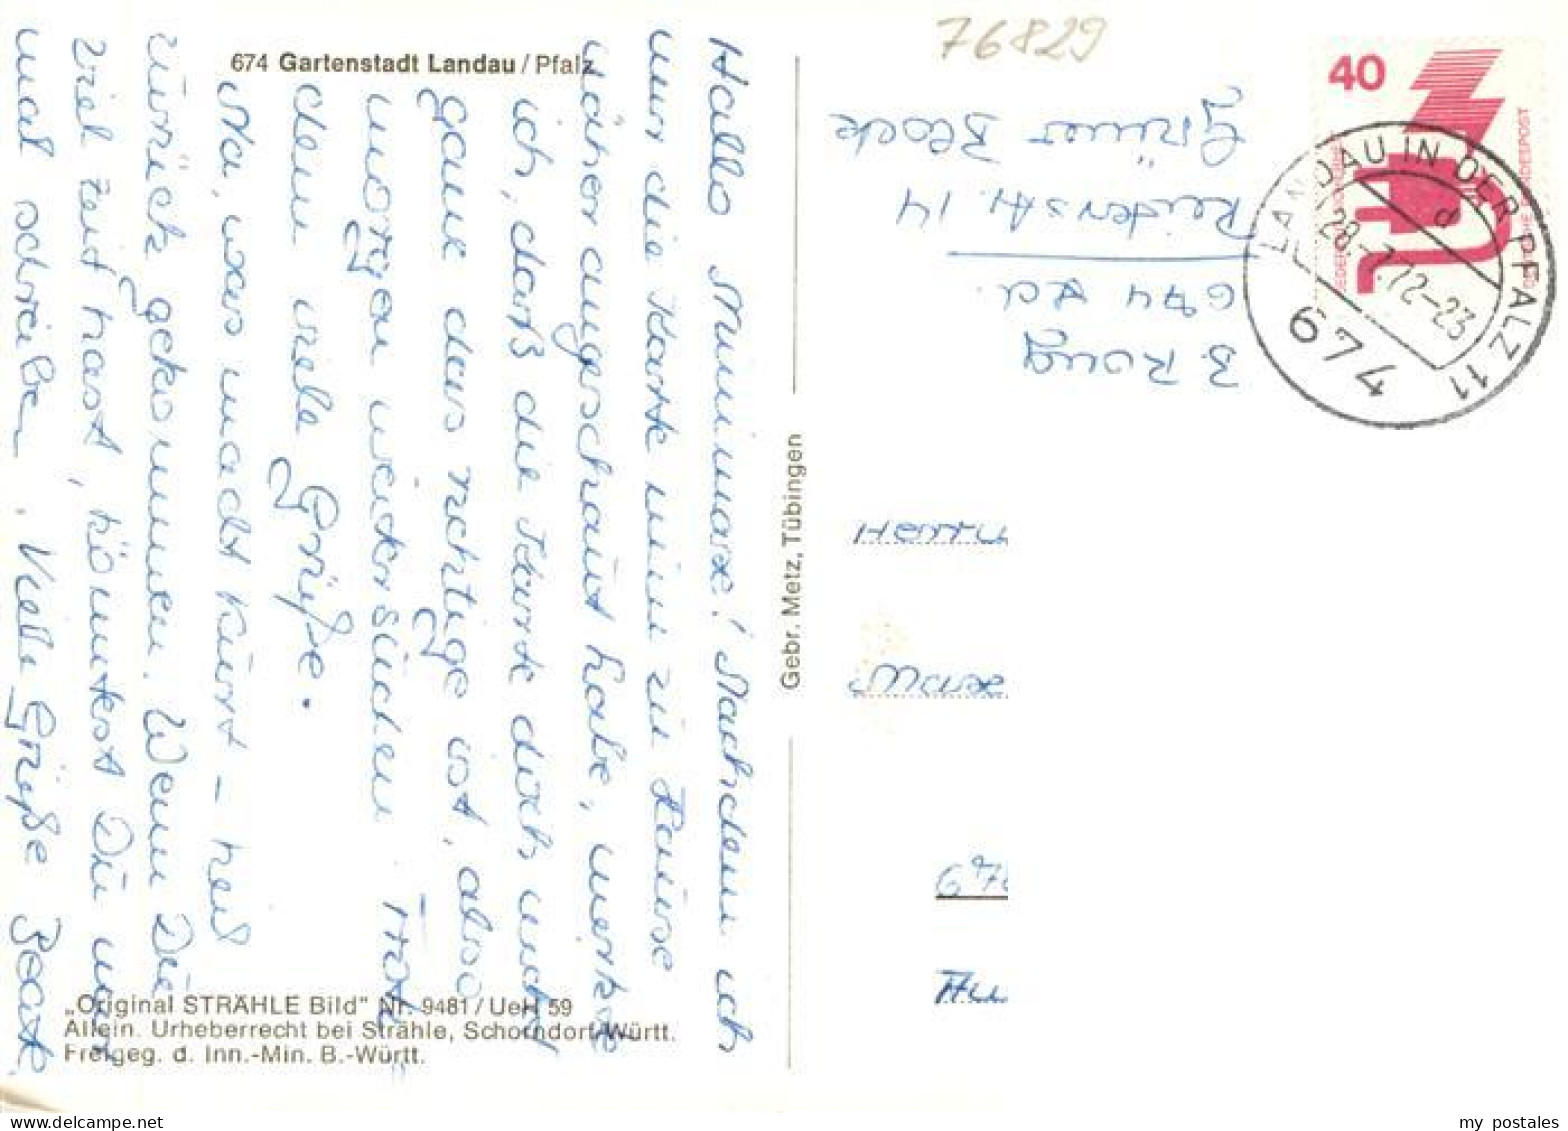 76829
674 Gartenstadt Landau/Pfalz
Hallo
! Nachdem ich
mir die Karte mir zu Hause
näher angeschaut habe, merke
ich, daß die Karte doch nicht
ganz das richtige ist, also
morgen weitersuchen.
denn viele Grüße.
Na, was macht Kurt - heil
zurück gekommen. Wenn Du
viel Zeit hast, könntest Du
mal schreiben. Viele Grüße Beate
„Original STRÄHLE Bild" Nr. 9481/UeH 59
Allein. Urheberrecht bei Strähle, Schorndorf-Württ.
Freigeg. d. Inn.-Min. B.-Württ.
Gebr. Metz, Tübingen
B.
674 Ld.
14
Grüner Block
40
DEUTSCHE BUNDESPOST
LANDAU IN DER PFALZ 11
d
28.-7.72-23
674
Herrn
my postales